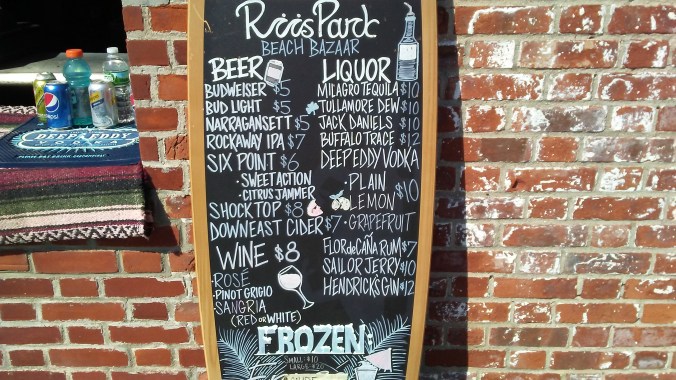 Riis Park
BEACH BAZAAR
BEER
BUDWEISER $5
BUD LIGHT $5
NARRAGANSETT $5
ROCKAWAY IPA $7
SIX POINT $6
• SWEET ACTION
• CITRUS JAMMER
SHOCKTOP $8
DOWNEAST CIDER $7
WINE $8
• ROSÉ
• PINOT GRIGIO
• SANGRIA
(RED OR WHITE)
LIQUOR
MILAGRO TEQUILA $10
TULLAMORE DEW $10
JACK DANIELS $10
BUFFALO TRACE $12
DEEP EDDY VODKA
• PLAIN
• LEMON
$10
• GRAPEFRUIT
FLOR de CAÑA RUM $7
SAILOR JERRY $10
HENDRICKS GIN $12
FROZEN:
SMALL: $10
LARGE: $20
pepsi
DEEP EDDY
VODKA